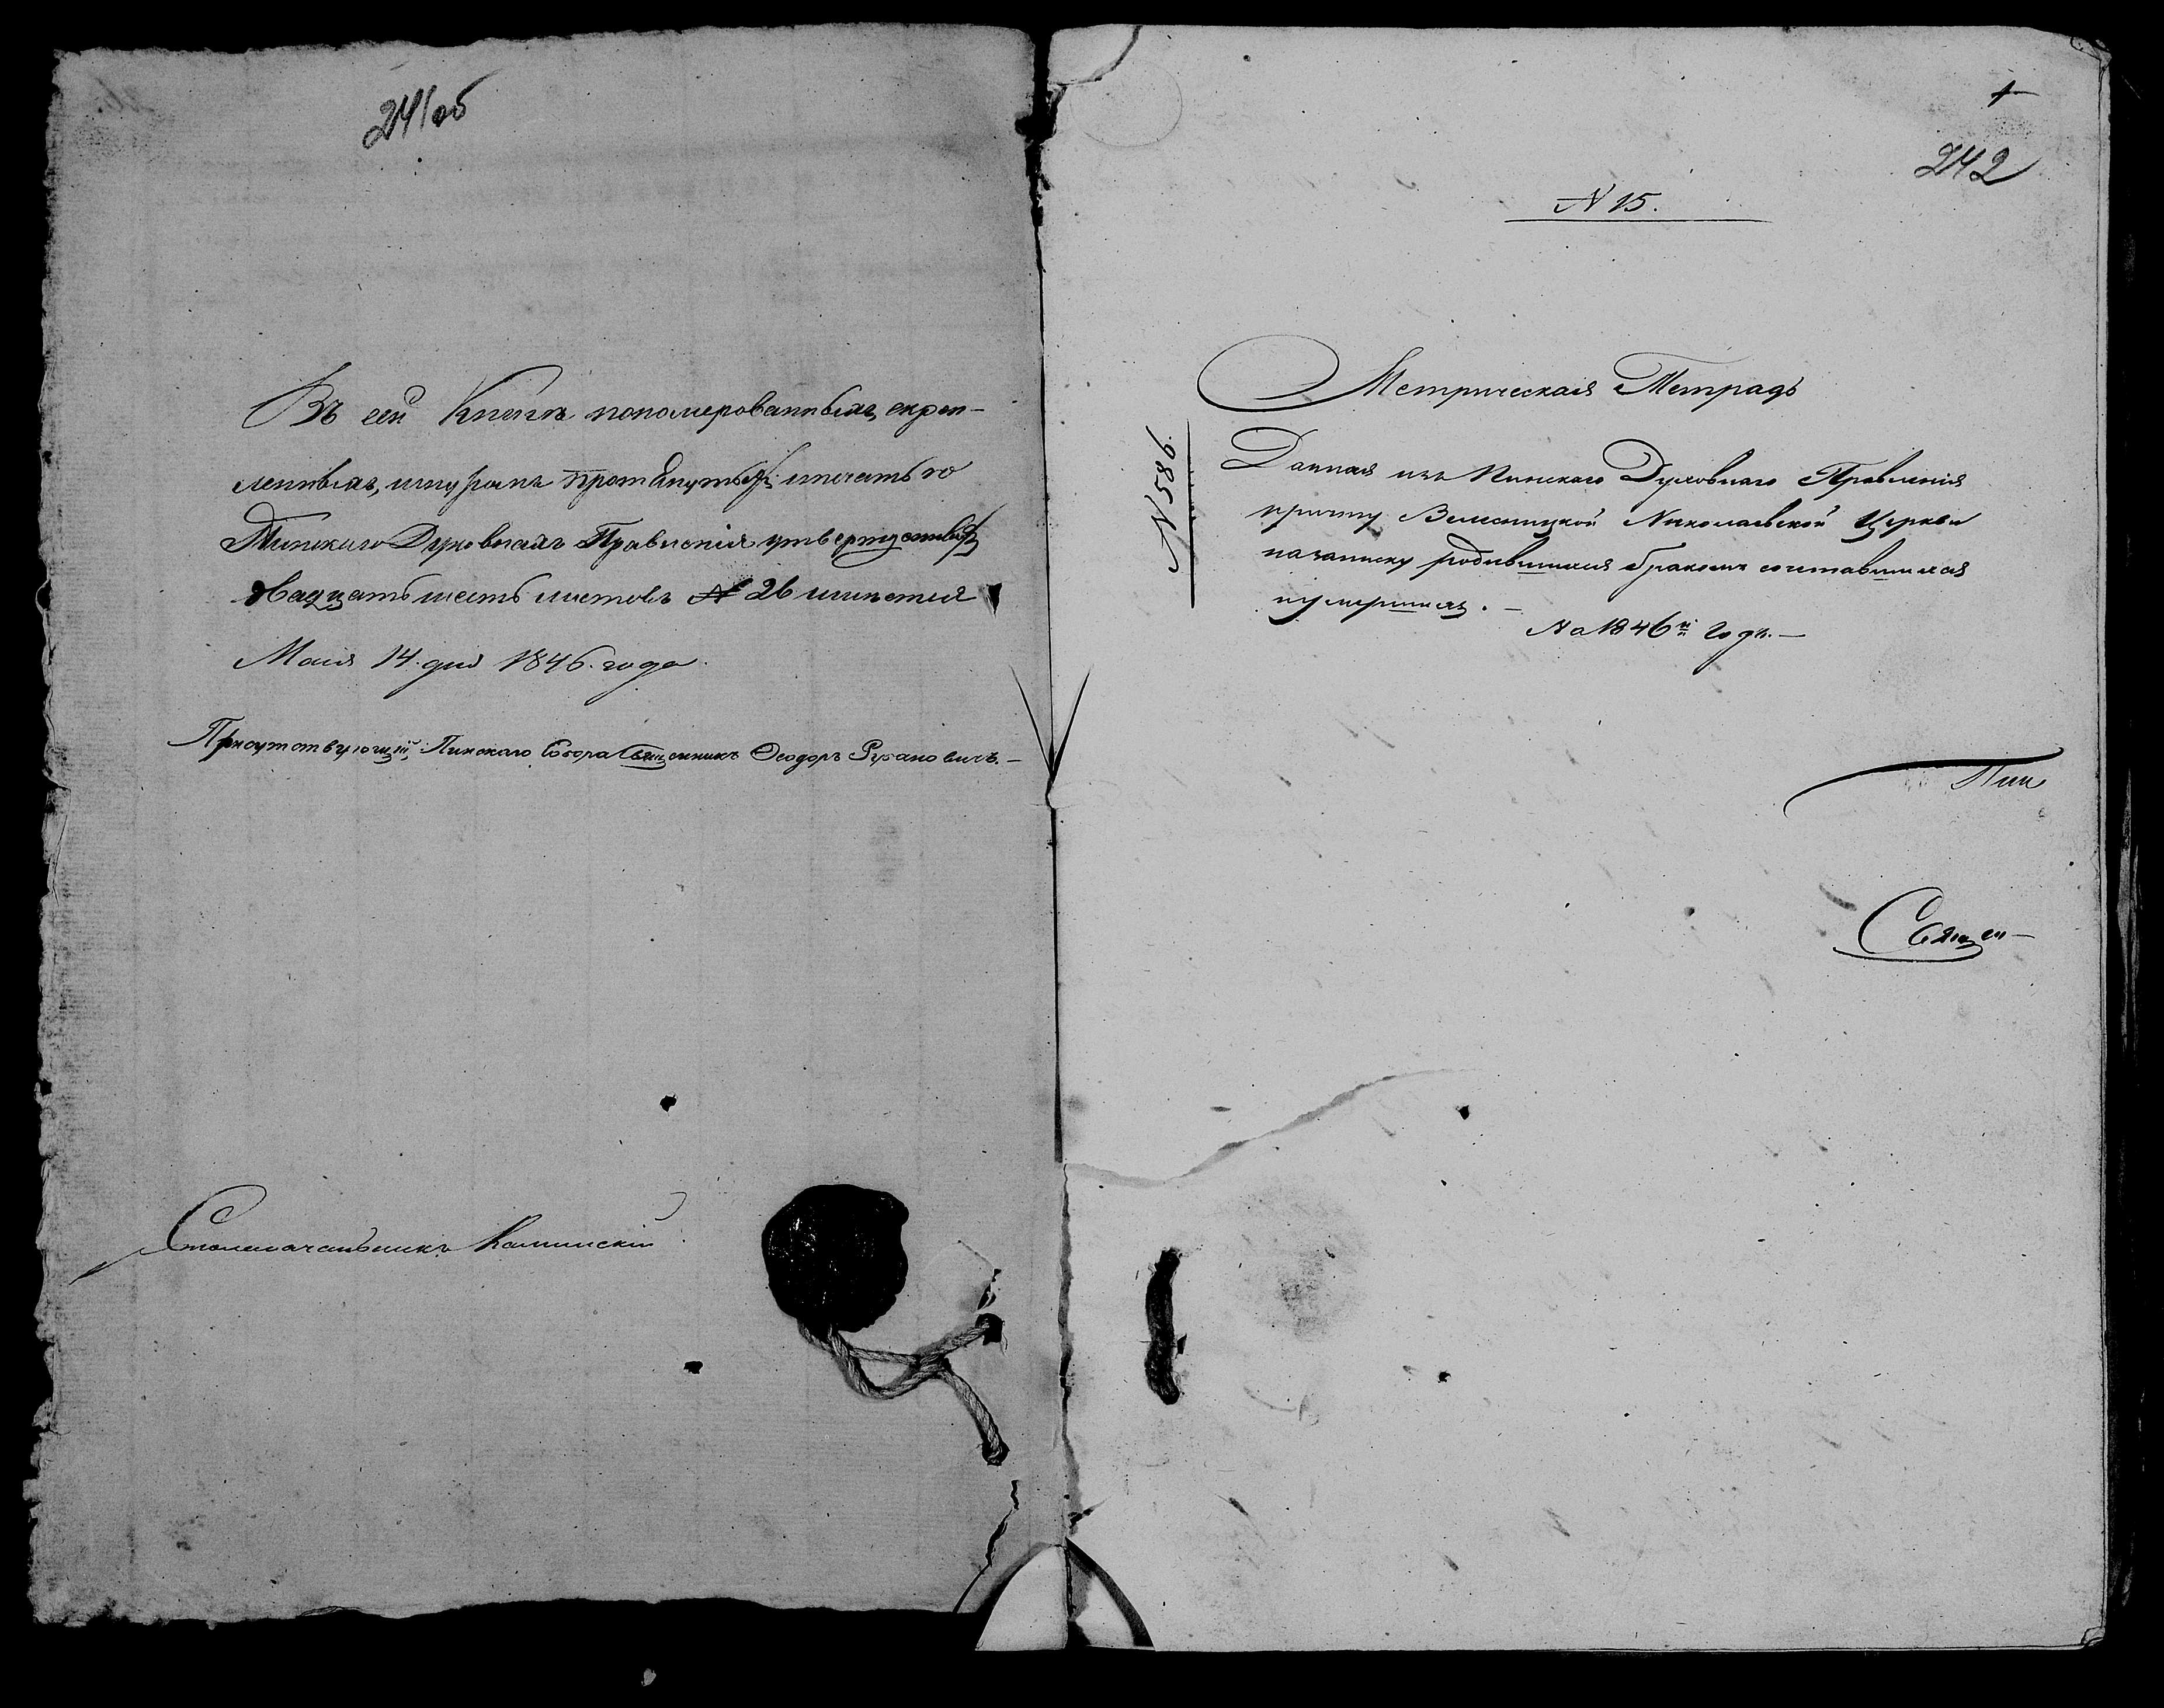 241об
Въ сей Книге пономерованныхъ, скреп-
ленныхъ, шнуромъ протянутыхъ ипечатью
Пинскаго Духовнаго Правленія утвержденныхъ
двадцать шесть листовъ № 26 имѣется
Маія 14. дня 1846. года.
Присутствующій, Пинскаго Собора Священникъ Ѳеодоръ
Столоначальникъ Каминскій
1
242
N 15.
N 586.
Метрическая Тетрадь
Данная изъ Пинскаго Духовнаго Правленія
причту Велесницкой Николаевской Церкви
назаписку родившихся бракомъ сочетавшихся
иумершихъ. —
На 1846й годъ. —
Пин
Священ—